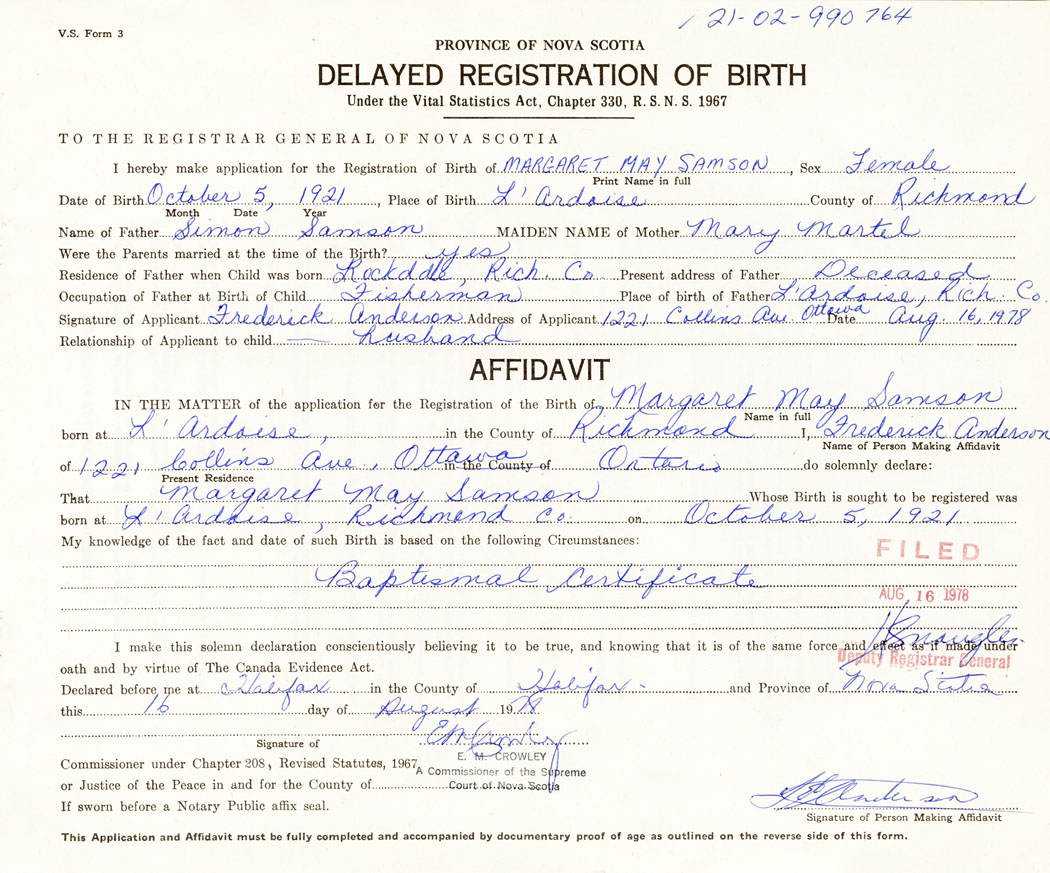 21-02-990764
V.S. Form 3
PROVINCE OF NOVA SCOTIA
DELAYED REGISTRATION OF BIRTH
Under the Vital Statistics Act, Chapter 330, R. S. N. S. 1967
TO THE REGISTRAR GENERAL OF NOVA SCOTIA
I hereby make application for the Registration of Birth of MARGARET MAY SAMSON, Sex Female
Print Name in full
Date of Birth October 5, 1921, Place of Birth L'Ardoise County of Richmond
Month Date Year
Name of Father Simon Samson MAIDEN NAME of Mother Mary Martel
Were the Parents married at the time of the Birth? yes
Residence of Father when Child was born Rockdale, Rich. Co. Present address of Father Deceased
Occupation of Father at Birth of Child Fisherman Place of birth of Father L'Ardoise, Rich. Co.
Signature of Applicant Frederick Anderson Address of Applicant 1221 Collins Ave. Ottawa Date Aug. 16, 1978
Relationship of Applicant to child husband
AFFIDAVIT
IN THE MATTER of the application for the Registration of the Birth of Margaret May Samson
Name in full
born at L'Ardoise, in the County of Richmond I, Frederick Anderson
Name of Person Making Affidavit
of 1221 Collins Ave, Ottawa in the County of Ontario do solemnly declare:
Present Residence
That Margaret May Samson Whose Birth is sought to be registered was
born at L'Ardoise, Richmond Co. on October 5, 1921
My knowledge of the fact and date of such Birth is based on the following Circumstances:
FILED
Baptismal Certificate
AUG 16 1978
I make this solemn declaration conscientiously believing it to be true, and knowing that it is of the same force and effect as if made under
Deputy Registrar General
oath and by virtue of The Canada Evidence Act.
Declared before me at Halifax in the County of Halifax and Province of Nova Scotia
this 16 day of August 1978
Signature of
E. M. CROWLEY
Commissioner under Chapter 208, Revised Statutes, 1967,
A Commissioner of the Supreme
or Justice of the Peace in and for the County of
Court of Nova Scotia
If sworn before a Notary Public affix seal.
Signature of Person Making Affidavit
This Application and Affidavit must be fully completed and accompanied by documentary proof of age as outlined on the reverse side of this form.